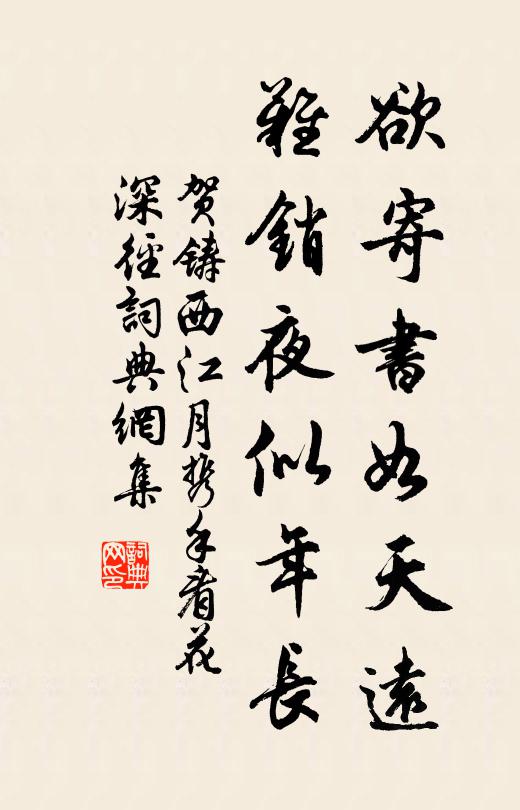 欲寄書如天遠
難銷夜似年長
贺鑄西江月携手看花
深徑詞典網集
詞典网印